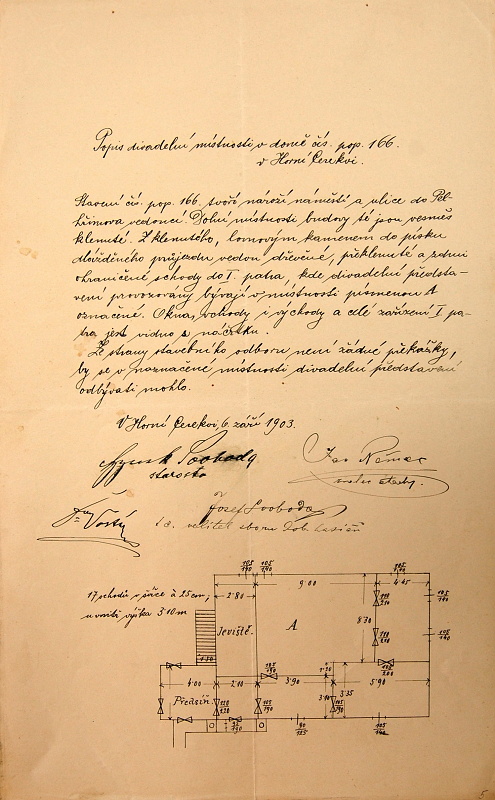 Popis divadelní místnosti v domě čís. pop. 166.
v Horní Cerekvi.
Stavení čís. pop. 166. tvoří nároží náměstí a ulice do Pel-
hřimova vedoucí. Dolní místnosti budovy té jsou vesměs
klenuté. Z klenutého, lomovým kamenem do písku
dlážděného průjezdu vedou dřevěné, překlenuté a zdmi
ohraničené schody do I. patra, kde divadelní předsta-
vení provozovány bývají v místnosti písmenou A
označené. Okna, vchody i východy a celé zařízení I. pa-
tra jest vidno z náčrtku.
Ze strany stavebního odboru není žádné překážky,
by se v naznačené místnosti divadelní představení
odbývati mohlo.
V Horní Cerekvi, 6. září 1903.
Hynek Svoboda
starosta
Jan Němec
Josef Svoboda
velitel sboru dob. hasičů
17 schodů v šířce à 25 cm;
uvnitř výška 3·10 m
105/140 105/140
9·00
4·45
2·80
Jeviště.
A
8·30
1·50
4·00
2·10
3·90
5·90
3·35
Předsíň